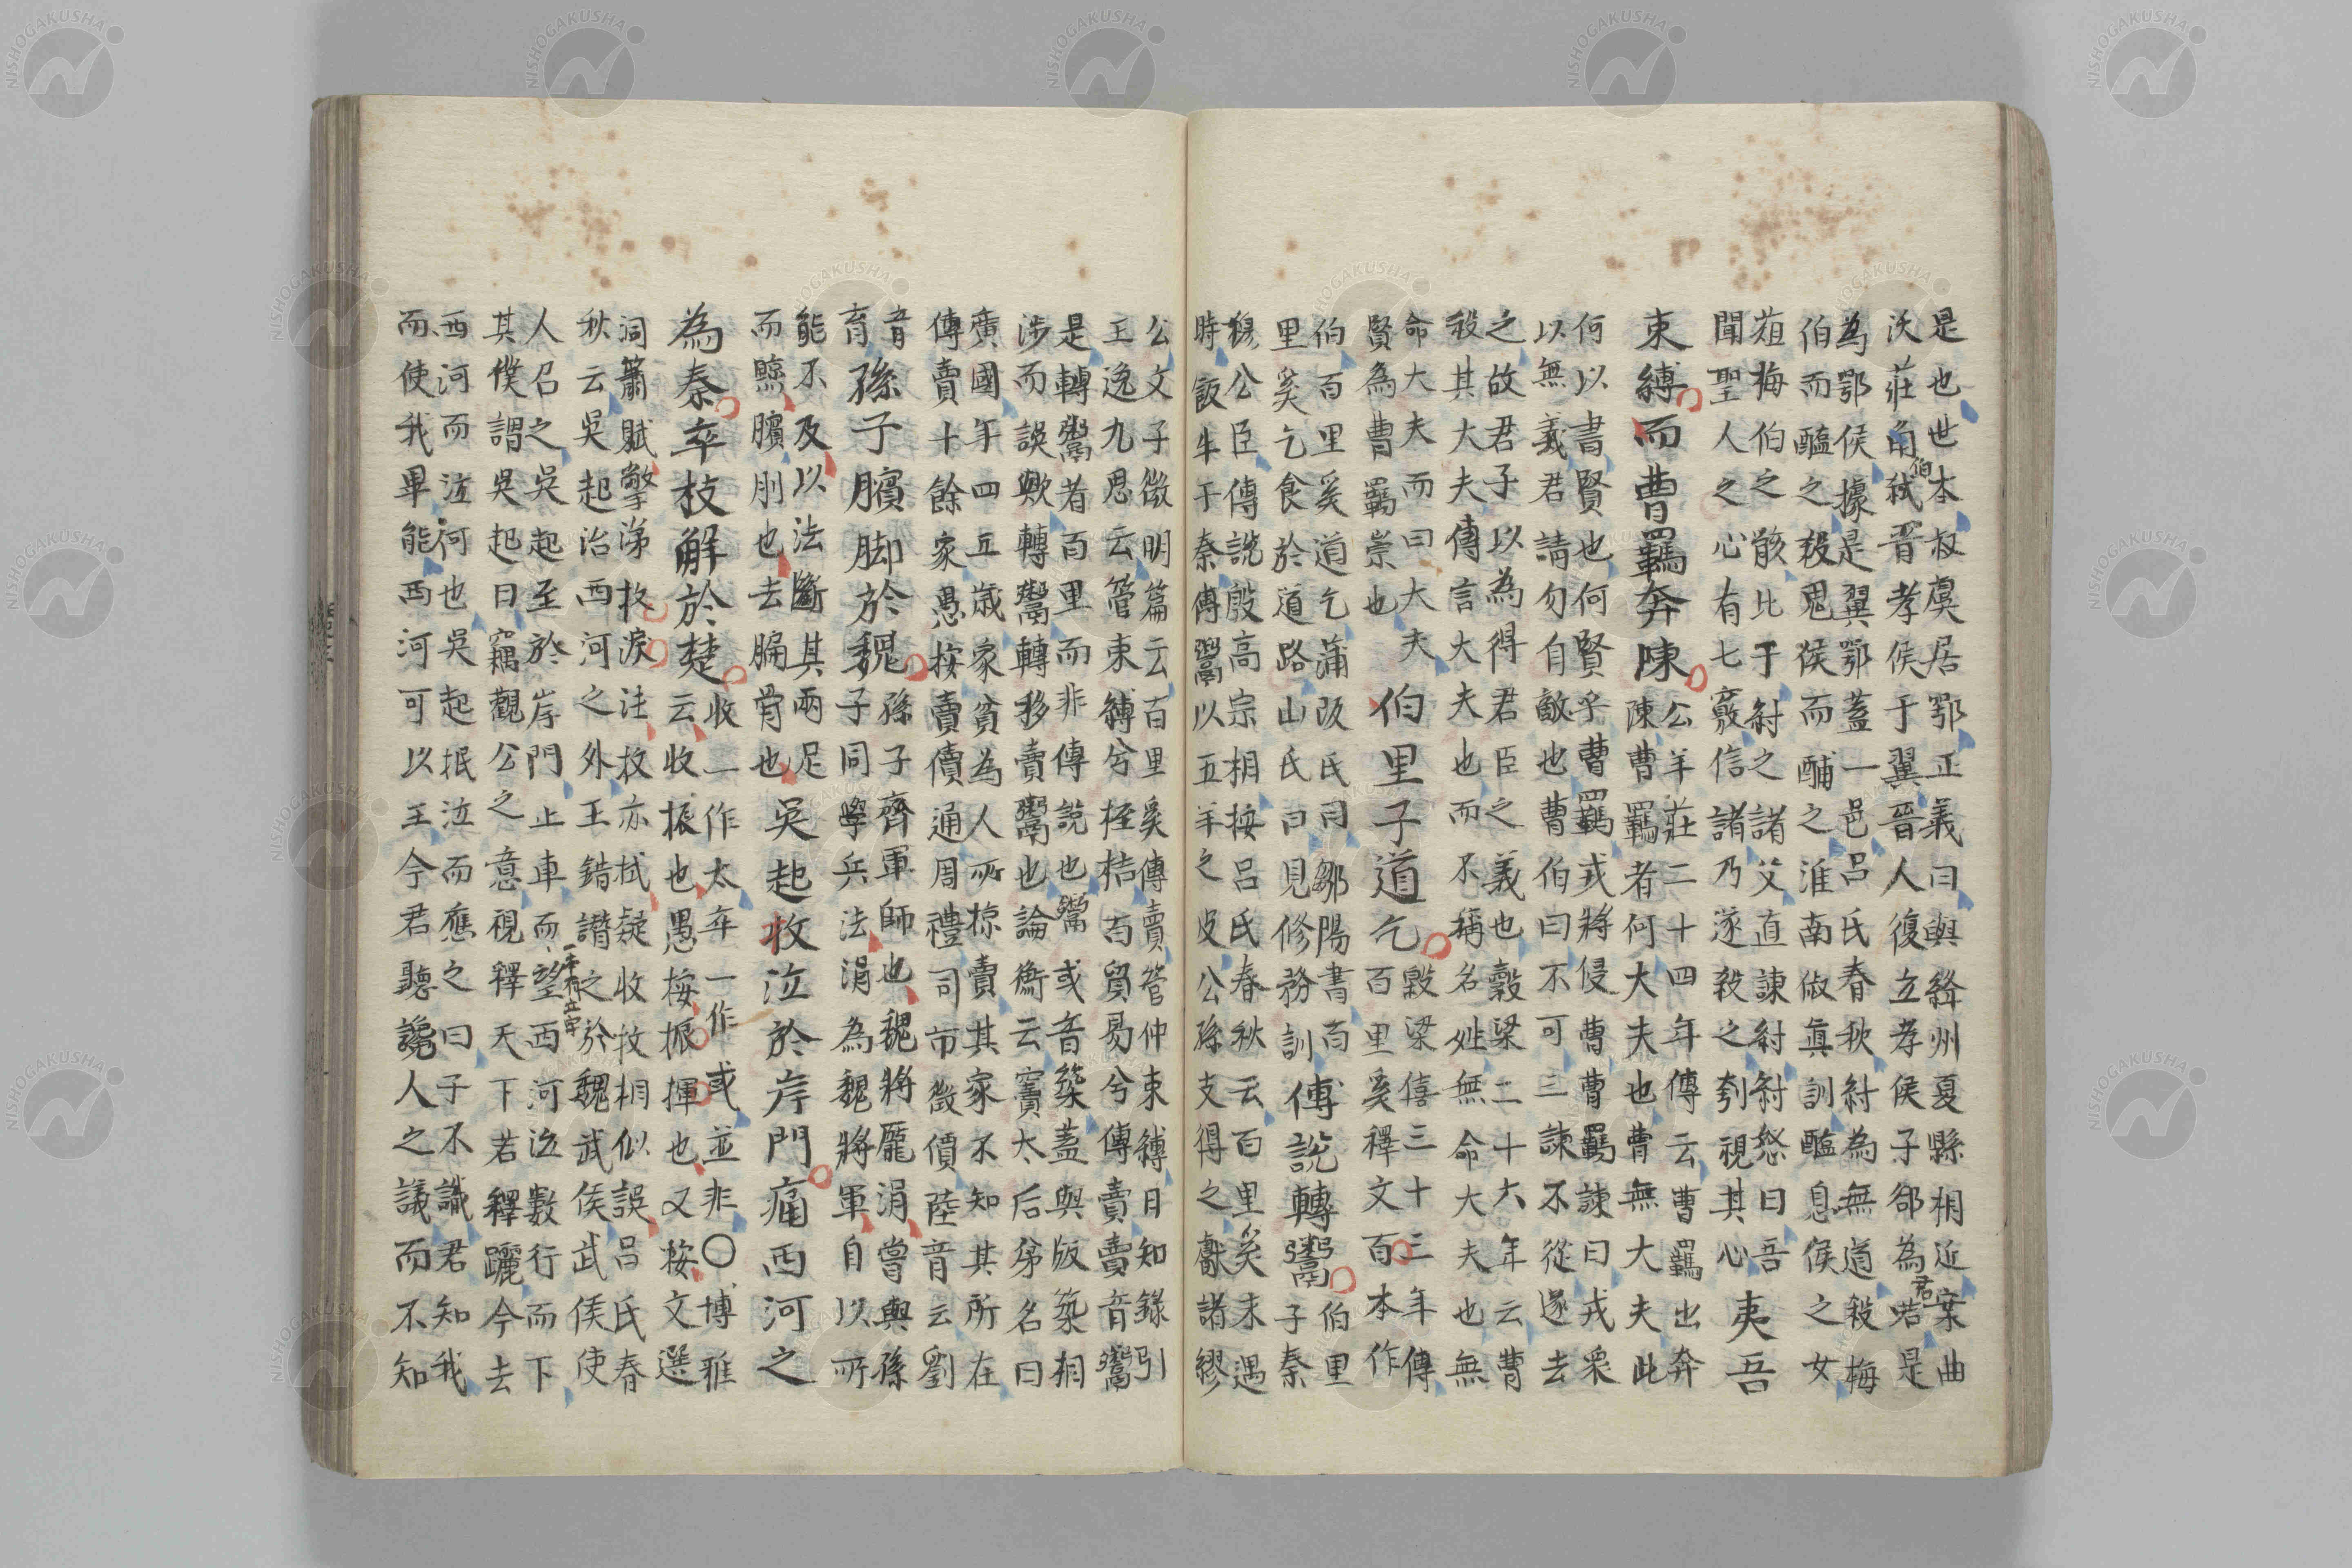 是也世本叔虞居鄂正義曰與絳州夏縣相近案曲
沃莊伯弒晋孝侯于翼晋人復立孝侯子郤為君是
為鄂侯據是翼鄂蓋一邑呂氏春秋紂為無道殺梅
伯而醢之殺鬼侯而酺之淮南俶真訓醢息侯之女
葅梅伯之骸比于紂之諸父直諫紂紂怒曰吾
聞聖人之心有七竅信諸乃遂殺之刳視其心
夷吾
束縛而曹羈奔陳
公羊莊二十四年傳云曹羈出奔
陳曹羈者何大夫也曹無大夫此
何以書賢也何賢乎曹羈戎將侵曹曹羈諫曰戎衆
以無義君請勿自敵也曹伯曰不可三諫不從遂去
之故君子以為得君臣之義也穀梁二十六年云曹
殺其大夫傳言大夫也而不稱名姓無命大夫也無
命大夫而曰大夫
賢為曹羈崇也
伯里子道乞
穀梁僖三十三年傳
百里奚釋文百本作
伯百里奚道乞蒲坂氏同鄒陽書百
里奚乞食於道路山氏曰見修務訓
傅說轉鬻
伯里
子秦
穆公臣傅說殷高宗相按呂氏春秋云百里奚未遇
時飯牛于秦傳鬻以五羊之皮公孫支得之獻諸繆
公文子微明篇云百里奚傳賣管仲束縛日知錄引
王逸九思云管束縛兮桎梏百貿易兮傳賣賣音鬻
是轉鬻者百里而非傅說也鬻或音築蓋與版築相
涉而誤歟轉鬻轉移賣鬻也論衡云竇太后弟名曰
廣國年四五歲家貧為人所掠賣其家不知其所在
傳賣十餘家愚按賣儥通周禮司市徵價陸音云劉
音
育
孫子臏脚於魏
孫子齊軍師也魏將龐涓嘗與孫
子同學兵法涓為魏將軍自以所
能不及以法斷其兩足
而黥臏刖也去膑骨也
吳起收泣於岸門痛西河之
為秦卒枝解於楚
收一作太卒一作或並非〇博雅
云收振也愚按振揮也又按文選
洞簫賦擎涕抆淚法抆亦拭疑收抆相似誤呂氏春
秋云吳起治西河之外王錯譖之於魏武侯武侯使
人召之吳起至於岸門止車而望西河泣數行而下
一本有立字
其僕謂吳起曰竊觀公之意視釋天下若釋躧今去
西河而泣何也吳起抿泣而應之曰子不識君知我
而使我畢能西河可以王今君聽讒人之議而不知